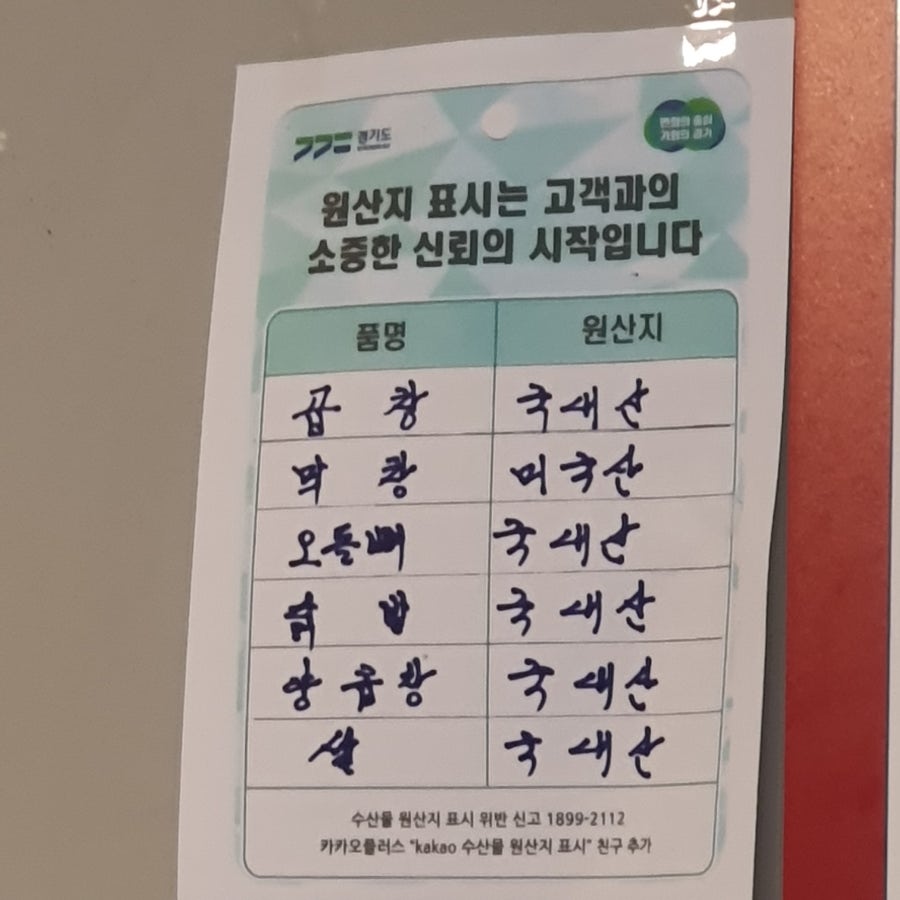 경기도
변화의 중심
기회의 경기
원산지 표시는 고객과의
소중한 신뢰의 시작입니다
품명 원산지
곱창 국내산
막창 미국산
오돌뼈 국내산
국내산
양곱창 국내산
쌀 국내산
수산물 원산지 표시 위반 신고 1899-2112
카카오플러스 "kakao 수산물 원산지 표시" 친구 추가